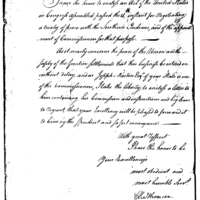 I have the honor to enclose an Act of the United States
in Congress assembled passed the 4th instant for Negotiating
a treaty of peace with the Northern Indians, and of the appoint
ment of Commissioners for that purpose.
As it nearly concerns the peace of the Union and the
safety of the frontier settlements that this business be entered on
without delay, and as Joseph of your State is one
of the Commissioners, I take the liberty to enclose a letter to
him containing his Commission and instructions and beg leave
to request that your Excellency will be pleased to forward it
to him by the safest conveyance
With great Respect
I have the honor to be
Your Excellency's
most obedient and
most humble Servt
Chas Thomson